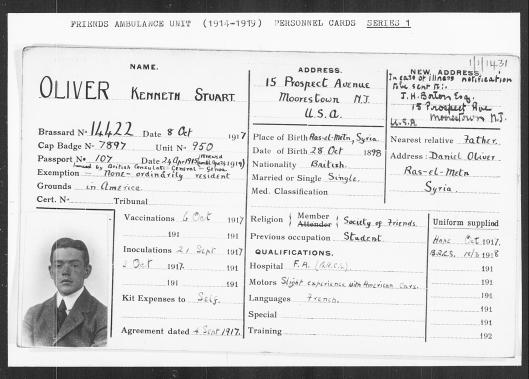 FRIENDS AMBULANCE UNIT (1914-1919) PERSONNEL CARDS SERIES 1
NAME.
OLIVER KENNETH STUART.
Brassard No 14422 Date 8 Oct 1917
Cap Badge No 7897 Unit No 950
Passport No 107 Date 24 Apr 1915
Issued by British Consulate-General - Genoa
Exemption - None - ordinarily resident
Grounds in America
Cert. No Tribunal
Vaccinations 6 Oct 1917
191 191
Inoculations 21 Sept 1917
3 Oct 1917. 191
191 191
Kit Expenses to Self.
Agreement dated 4 Sept 1917.
ADDRESS.
15 Prospect Avenue
Moorestown N.J.
U.S.A.
Place of Birth Ras-el-Metn, Syria
Date of Birth 28 Oct 1898
Nationality British.
Married or Single Single.
Med. Classification
Religion { Member Attender } Society of Friends.
Previous occupation Student.
QUALIFICATIONS.
Hospital F.A. (B.R.C.S.)
Motors Slight experience with American Cars.
Languages French.
Special
Training
1/1/1431
NEW ADDRESS
In case of illness notification
to be sent to:-
J.H. Borton Esq.
15 Prospect Ave
Moorestown N.J.
U.S.A
Nearest relative Father.
Address: Daniel Oliver.
Ras-el-Metn
Syria.
Uniform supplied
Oct 1917.
B.R.C.S. 1918
191
191
191
191
191
192